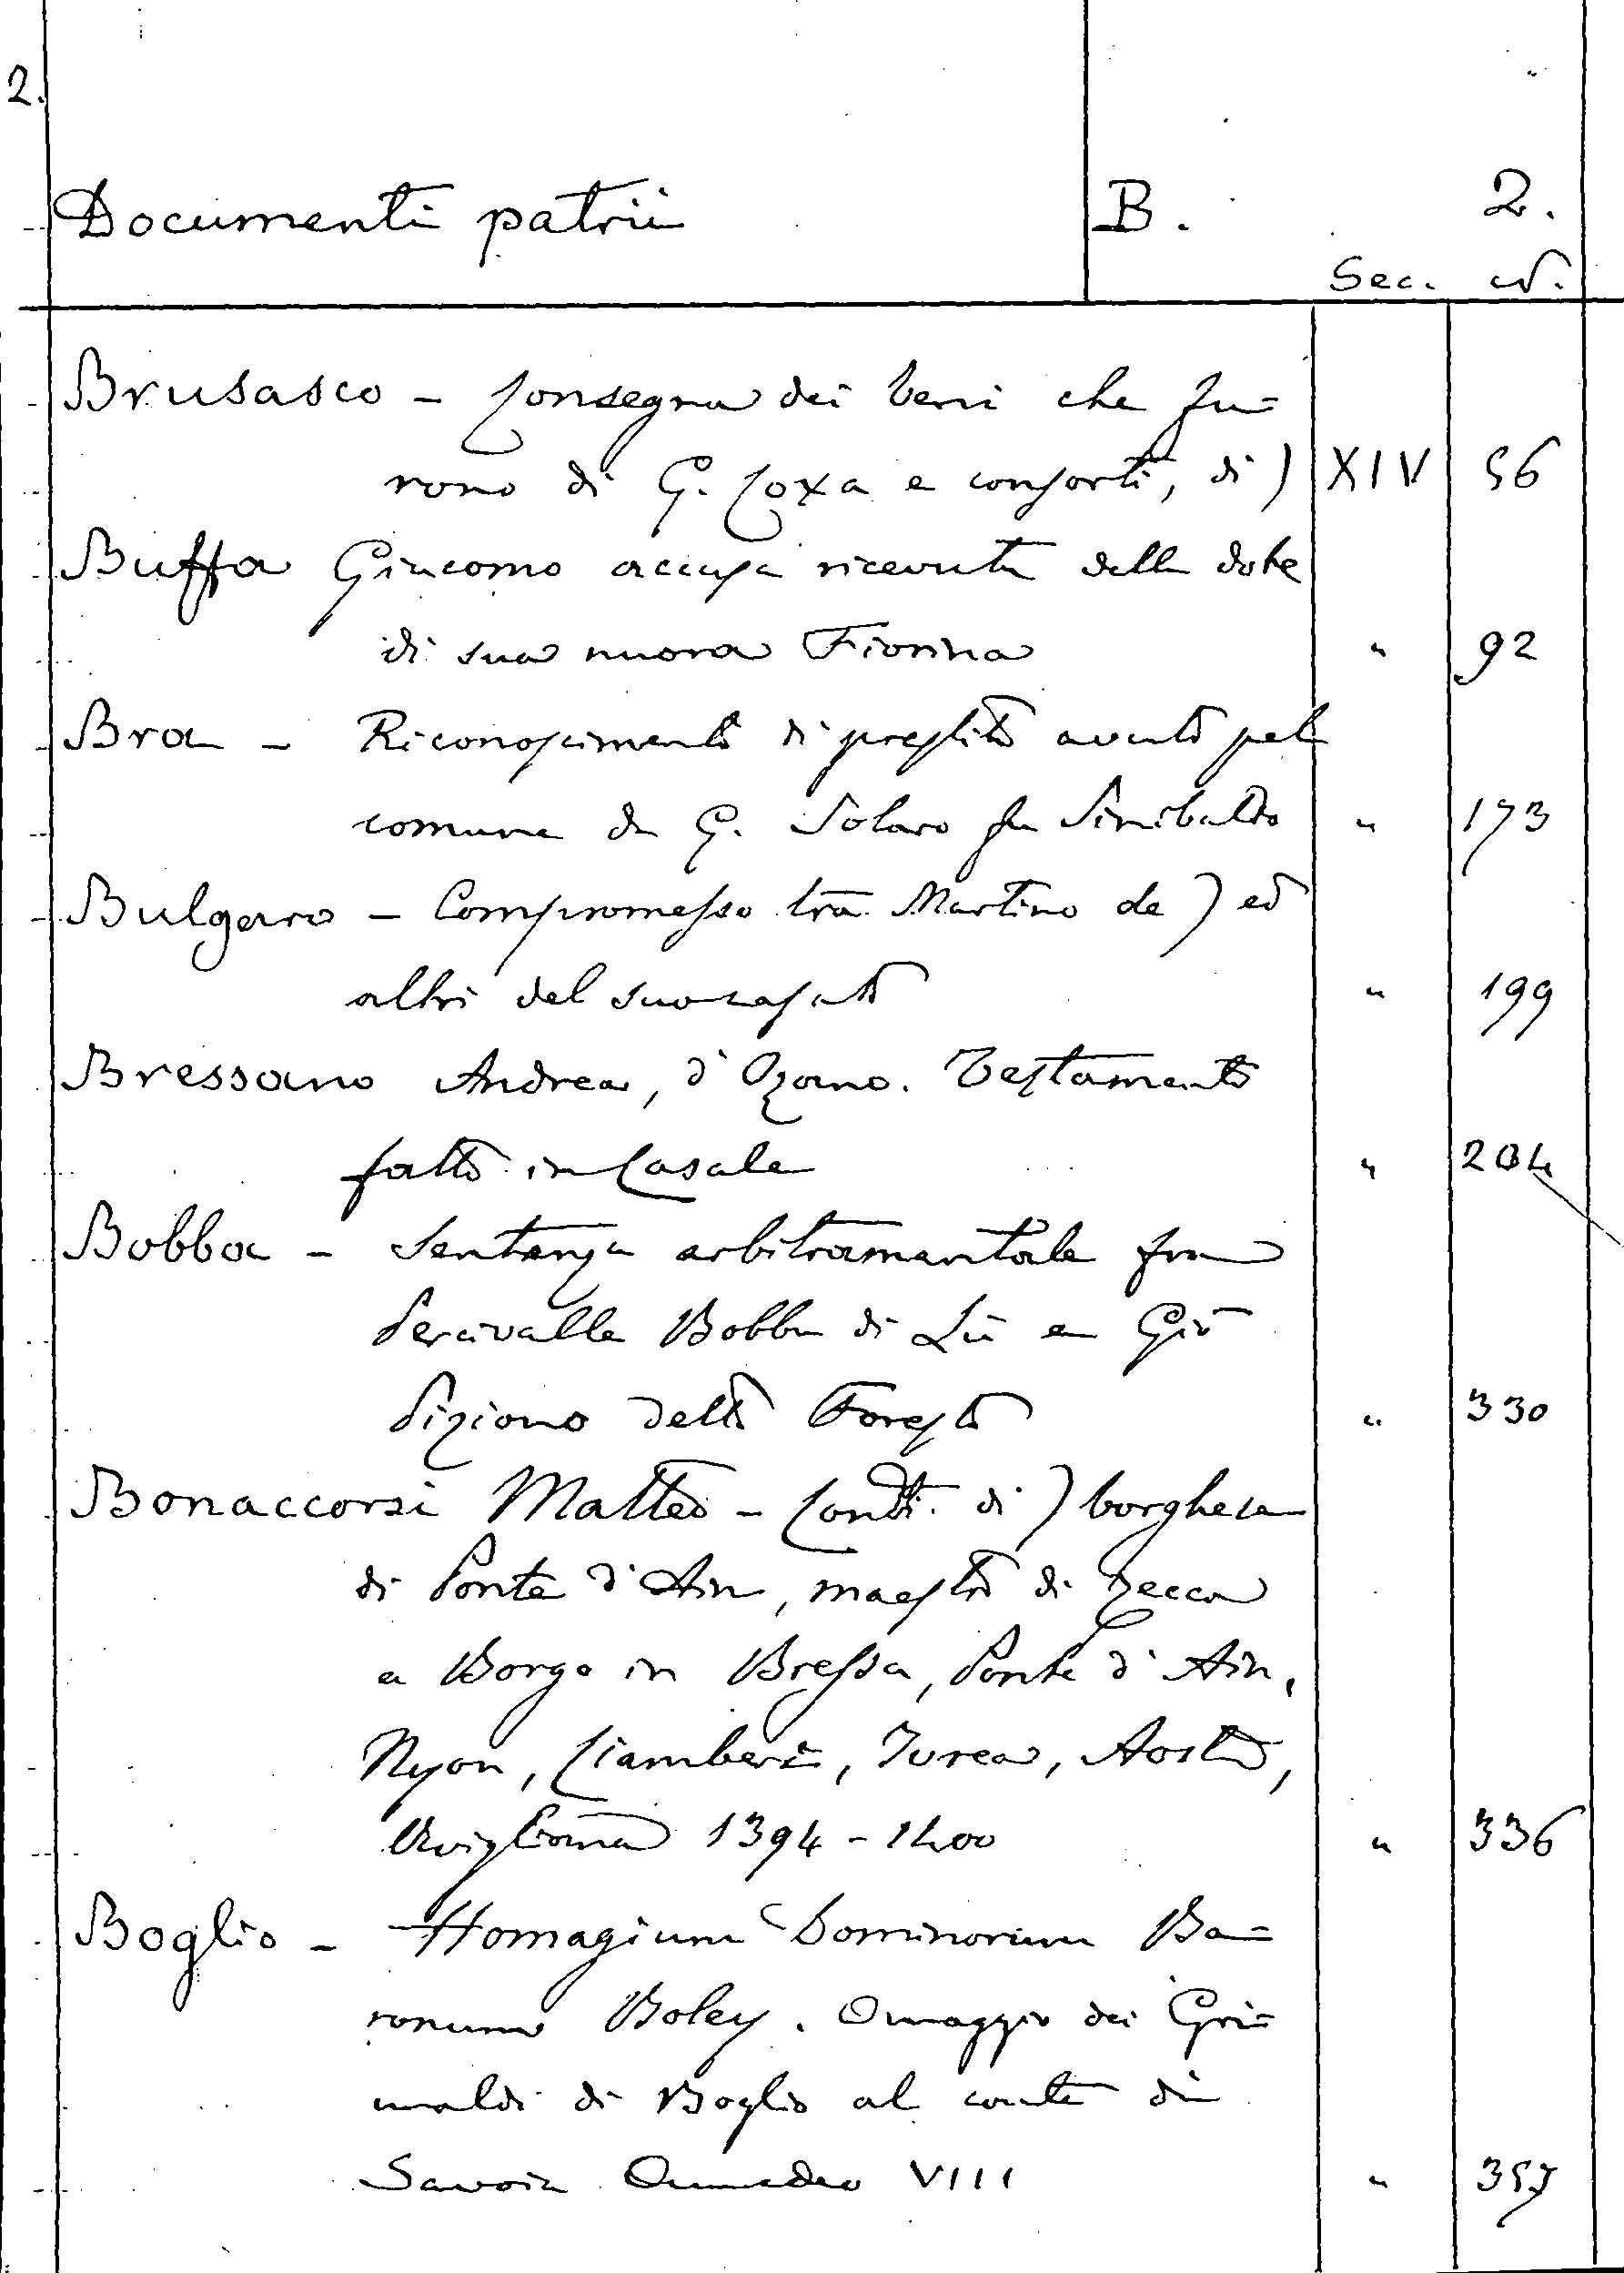 2.
Documenti patrii B. 2.
Sec. N.
Brusasco - Consegna dei beni che fu=
rono di G. Coxa e consorti, di) XIV 56
Buffa Giacomo accusa ricevuta della dote
di sua nuora Fiorina " 92
Bra - Riconoscimento di prestito avuto pel
comune da G. Solaro fu Sinibaldo " 173
Bulgaro - Compromesso tra Martino de) ed
altri del suo casato " 199
Bressano Andrea, d'Ozano. Testamento
fatto in Casale " 204
Bobba - Sentenza arbitramentale fra
Percivalle Bobba di Lù e Gio
Piziono detto Foresto " 330
Bonaccorsi Matteo - Conti. di) borghese
di Ponte d'Ain, mastro di Zecca
a Borgo in Bressa, Ponte d'Ain,
Nyon, Ciamberì, Ivrea, Aosta,
Avigliana 1394 - 1400 " 336
Boglio - Homagium Dominorum Ba=
ronum Boley. Omaggio dei Gri=
maldi di Boglio al conte di
Savoia Amedeo VIII " 357